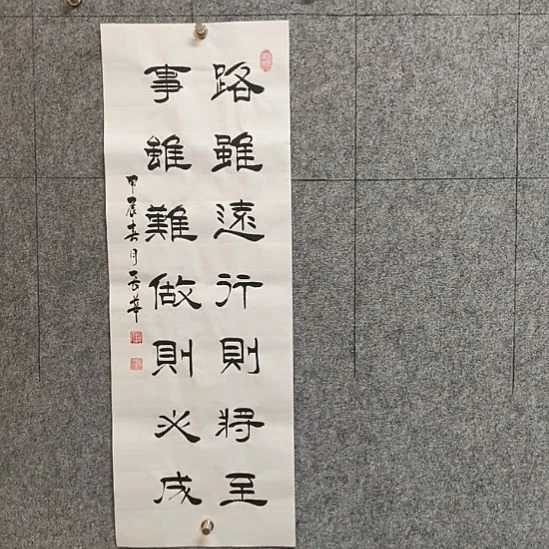 路雖遠行則將至
事雖難做則必成
甲辰春月長華